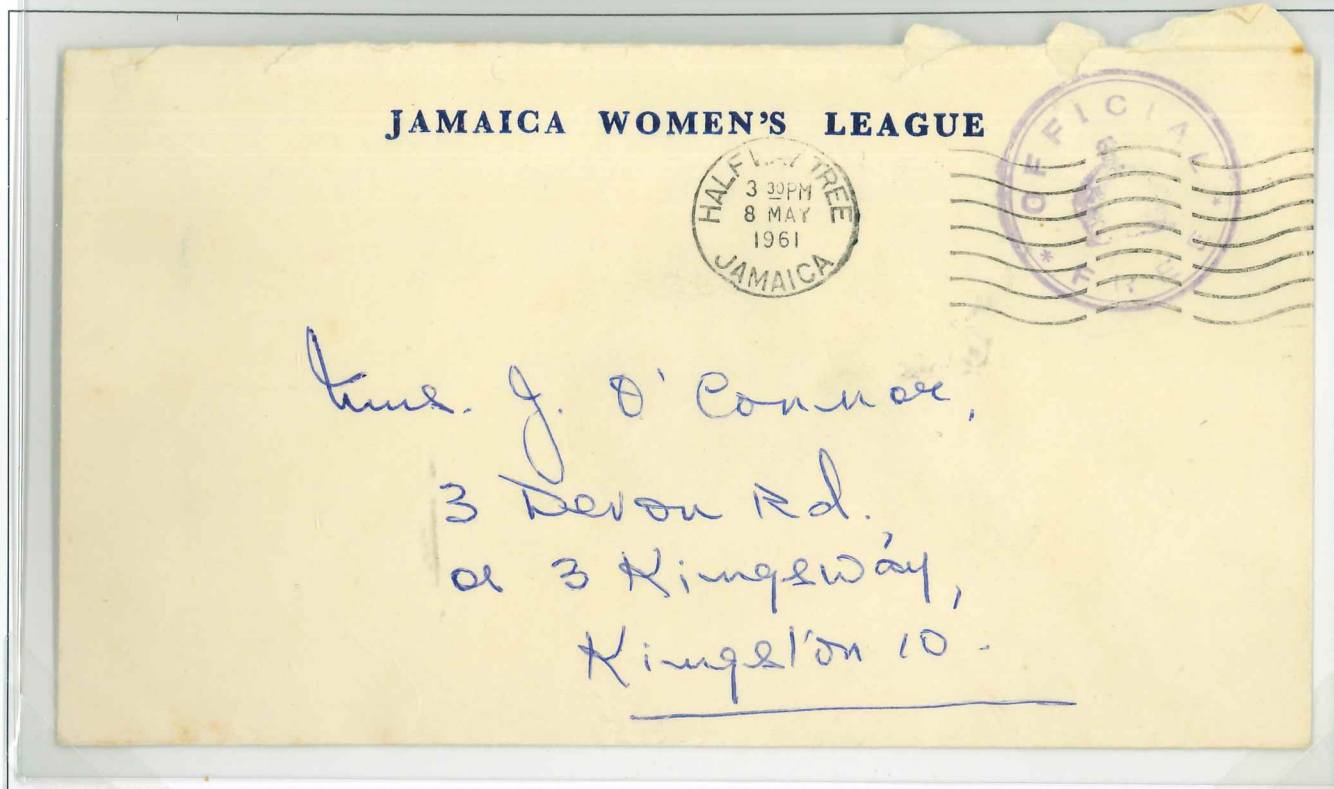 JAMAICA WOMEN'S LEAGUE
HALF WAY TREE
3 30PM
8 MAY
1961
JAMAICA
OFFICIAL
* FREE *
Mrs. J. O'Connor,
3 Devon Rd.,
or 3 Kingsway,
Kingston 10.